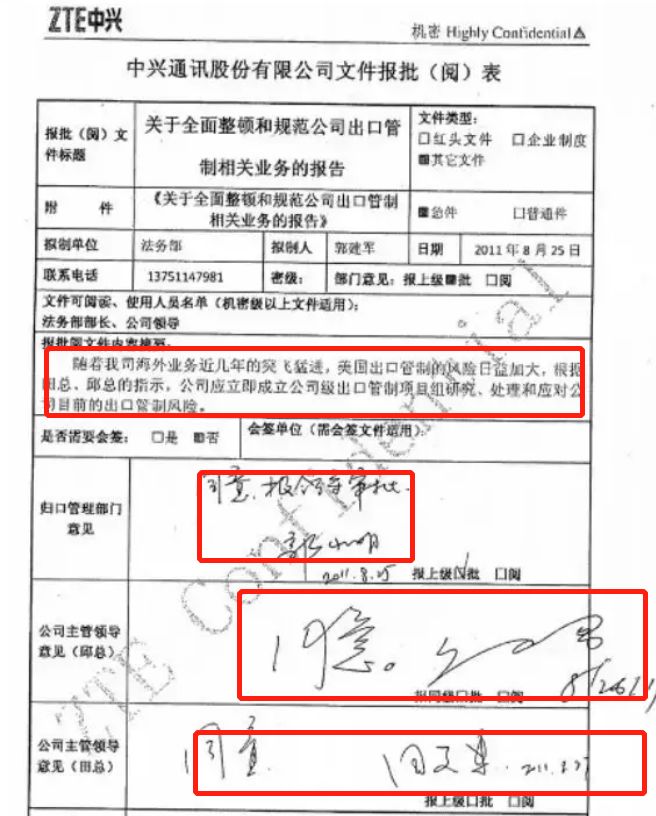 ZTE中兴
机密 Highly Confidential△
中兴通讯股份有限公司文件报批（阅）表
报批（阅）文件标题
关于全面整顿和规范公司出口管制相关业务的报告
文件类型：
□红头文件 □企业制度
■其它文件
附 件
《关于全面整顿和规范公司出口管制相关业务的报告》
■急件 □普通件
拟制单位 法务部 拟制人 郭建军 日期 2011年8月25日
联系电话 13751147981 密级： 部门意见：报上级■批 □阅
文件可阅读、使用人员名单（机密级以上文件适用）：
法务部部长、公司领导
报批阅文件内容摘要：
随着我司海外业务近几年的突飞猛进，美国出口管制的风险日益加大，根据
田总、邱总的指示，公司应立即成立公司级出口管制项目组研究、处理和应对公
司目前的出口管制风险。
是否需要会签： □是 ■否 会签单位（需会签文件适用）：
归口管理部门
意见
同意，报领导审批.
2011.8.25 报上级☑批 □阅
公司主管领导
意见（邱总）
同意。
报上级□批 □阅
公司主管领导
意见（田总）
同意
2011.8.27
报上级□批 □阅
ZTE Confidential